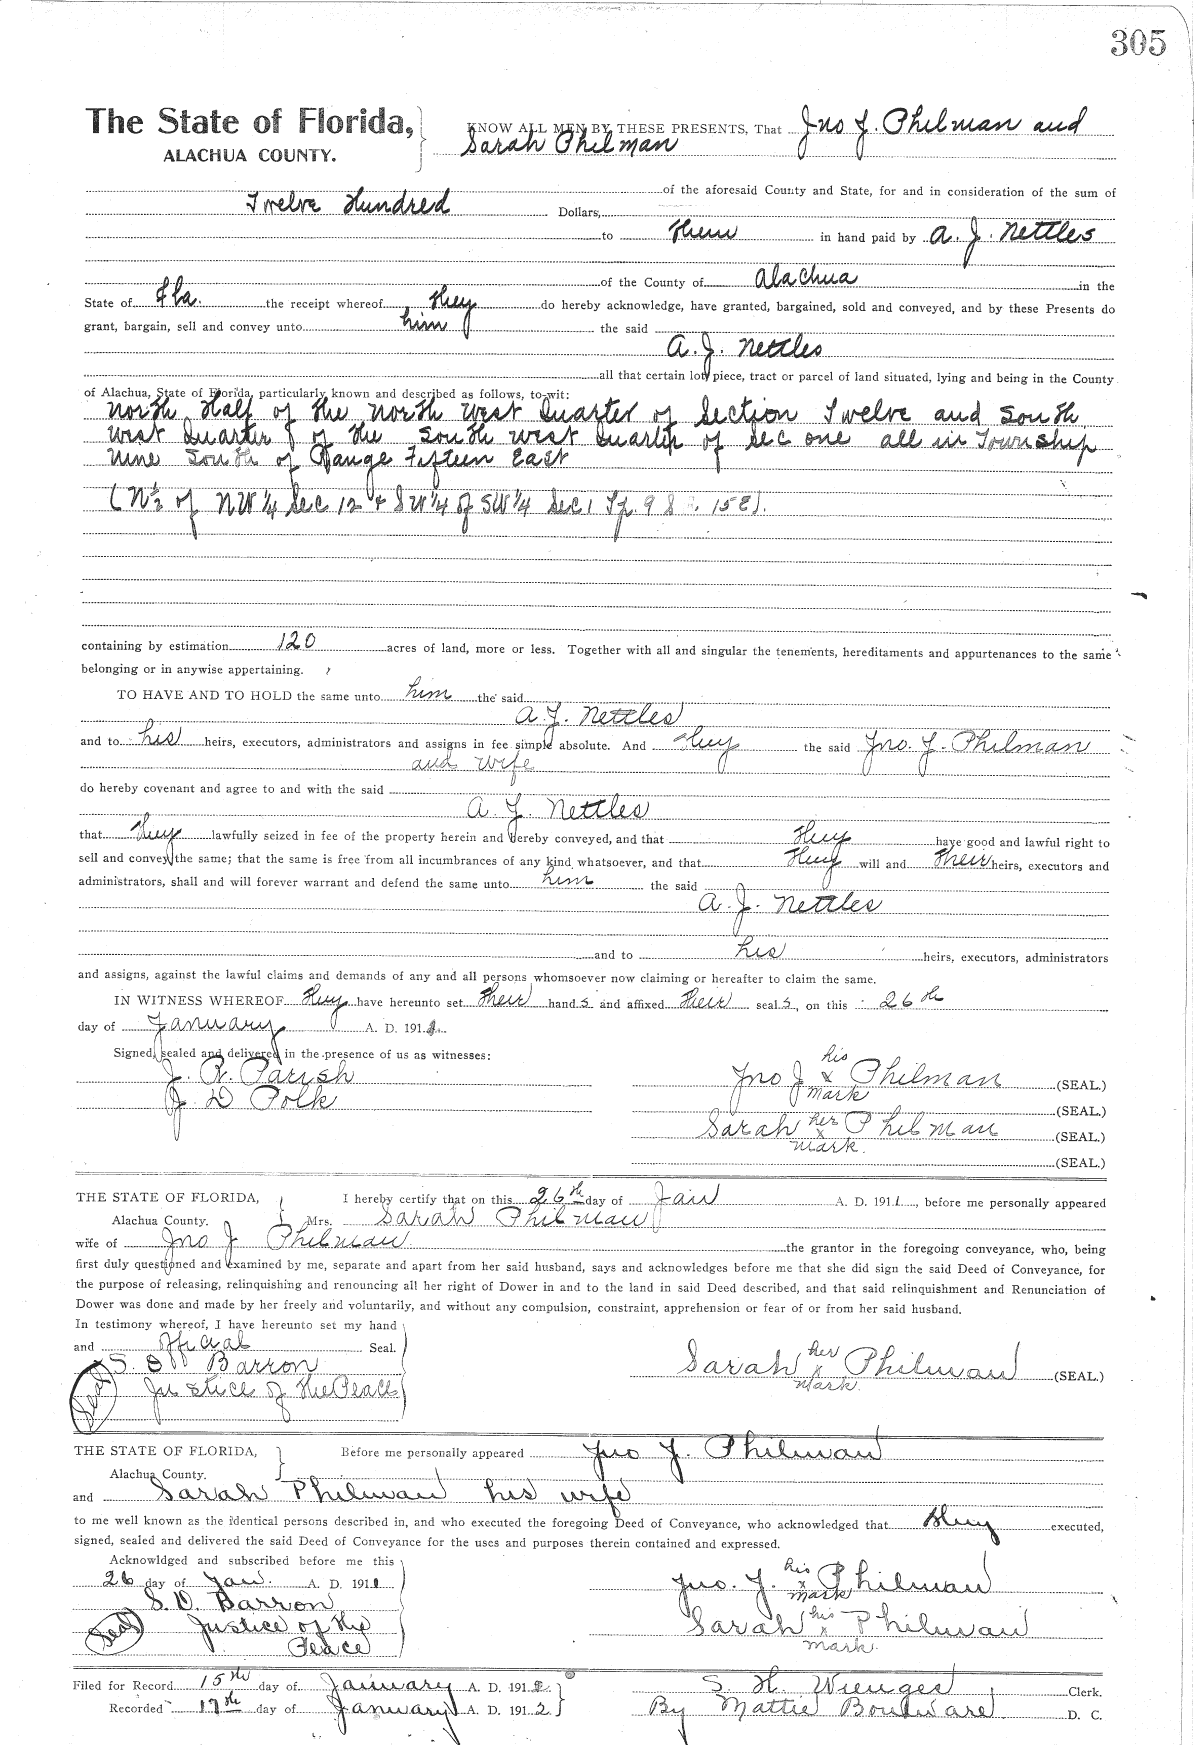 305
The State of Florida,
ALACHUA COUNTY.
KNOW ALL MEN BY THESE PRESENTS, That Jno J. Philman and
Sarah Philman
of the aforesaid County and State, for and in consideration of the sum of
Twelve Hundred Dollars,
to them in hand paid by A. J. Nettles
of the County of Alachua in the
State of Fla. the receipt whereof they do hereby acknowledge, have granted, bargained, sold and conveyed, and by these Presents do
grant, bargain, sell and convey unto him the said
A. J. Nettles
all that certain lot, piece, tract or parcel of land situated, lying and being in the County
of Alachua, State of Florida, particularly known and described as follows, to-wit:
North Half of the North West Quarter of Section Twelve and South
West Quarter of the South West Quarter of Sec one all in Township
Nine South of Range Fifteen East
(N½ of NW¼ Sec 12 & SW¼ of SW¼ Sec 1 Tp. 9 S. 15E).
containing by estimation 120 acres of land, more or less. Together with all and singular the tenements, hereditaments and appurtenances to the same
belonging or in anywise appertaining.
TO HAVE AND TO HOLD the same unto him the said
A. J. Nettles
and to his heirs, executors, administrators and assigns in fee simple absolute. And they the said Jno. J. Philman
and wife
do hereby covenant and agree to and with the said
A. J. Nettles
that they lawfully seized in fee of the property herein and hereby conveyed, and that they have good and lawful right to
sell and convey the same; that the same is free from all incumbrances of any kind whatsoever, and that they will and their heirs, executors and
administrators, shall and will forever warrant and defend the same unto him the said
A. J. Nettles
and to his heirs, executors, administrators
and assigns, against the lawful claims and demands of any and all persons whomsoever now claiming or hereafter to claim the same.
IN WITNESS WHEREOF they have hereunto set their hands and affixed their seals, on this 26th
day of January A. D. 1911.
Signed, sealed and delivered in the presence of us as witnesses:
J. R. Parish
J D Polk
his
Jno J x Philman (SEAL.)
mark
(SEAL.)
Sarah her x Philman (SEAL.)
mark.
(SEAL.)
THE STATE OF FLORIDA,
Alachua County.
I hereby certify that on this 26th day of Jan A. D. 1911, before me personally appeared
Mrs. Sarah Philman
wife of Jno J Philman the grantor in the foregoing conveyance, who, being
first duly questioned and examined by me, separate and apart from her said husband, says and acknowledges before me that she did sign the said Deed of Conveyance, for
the purpose of releasing, relinquishing and renouncing all her right of Dower in and to the land in said Deed described, and that said relinquishment and Renunciation of
Dower was done and made by her freely and voluntarily, and without any compulsion, constraint, apprehension or fear of or from her said husband.
In testimony whereof, I have hereunto set my hand
and official Seal.
Barron
Justice of the Peace
Seal
her
Sarah x Philman (SEAL.)
mark.
THE STATE OF FLORIDA,
Alachua County.
Before me personally appeared Jno J. Philman
and Sarah Philman his wife
to me well known as the identical persons described in, and who executed the foregoing Deed of Conveyance, who acknowledged that they executed,
signed, sealed and delivered the said Deed of Conveyance for the uses and purposes therein contained and expressed.
Acknowldged and subscribed before me this
26 day of Jan. A. D. 1911
S. D. Barron
Seal
Justice of the
Peace
his
Jno. J. x Philman
mark
Sarah his x Philman
mark.
Filed for Record 15th day of January A. D. 1912.
Recorded 17th day of January A. D. 1912
S. H. Wienges Clerk.
By Mattie Boulware D. C.